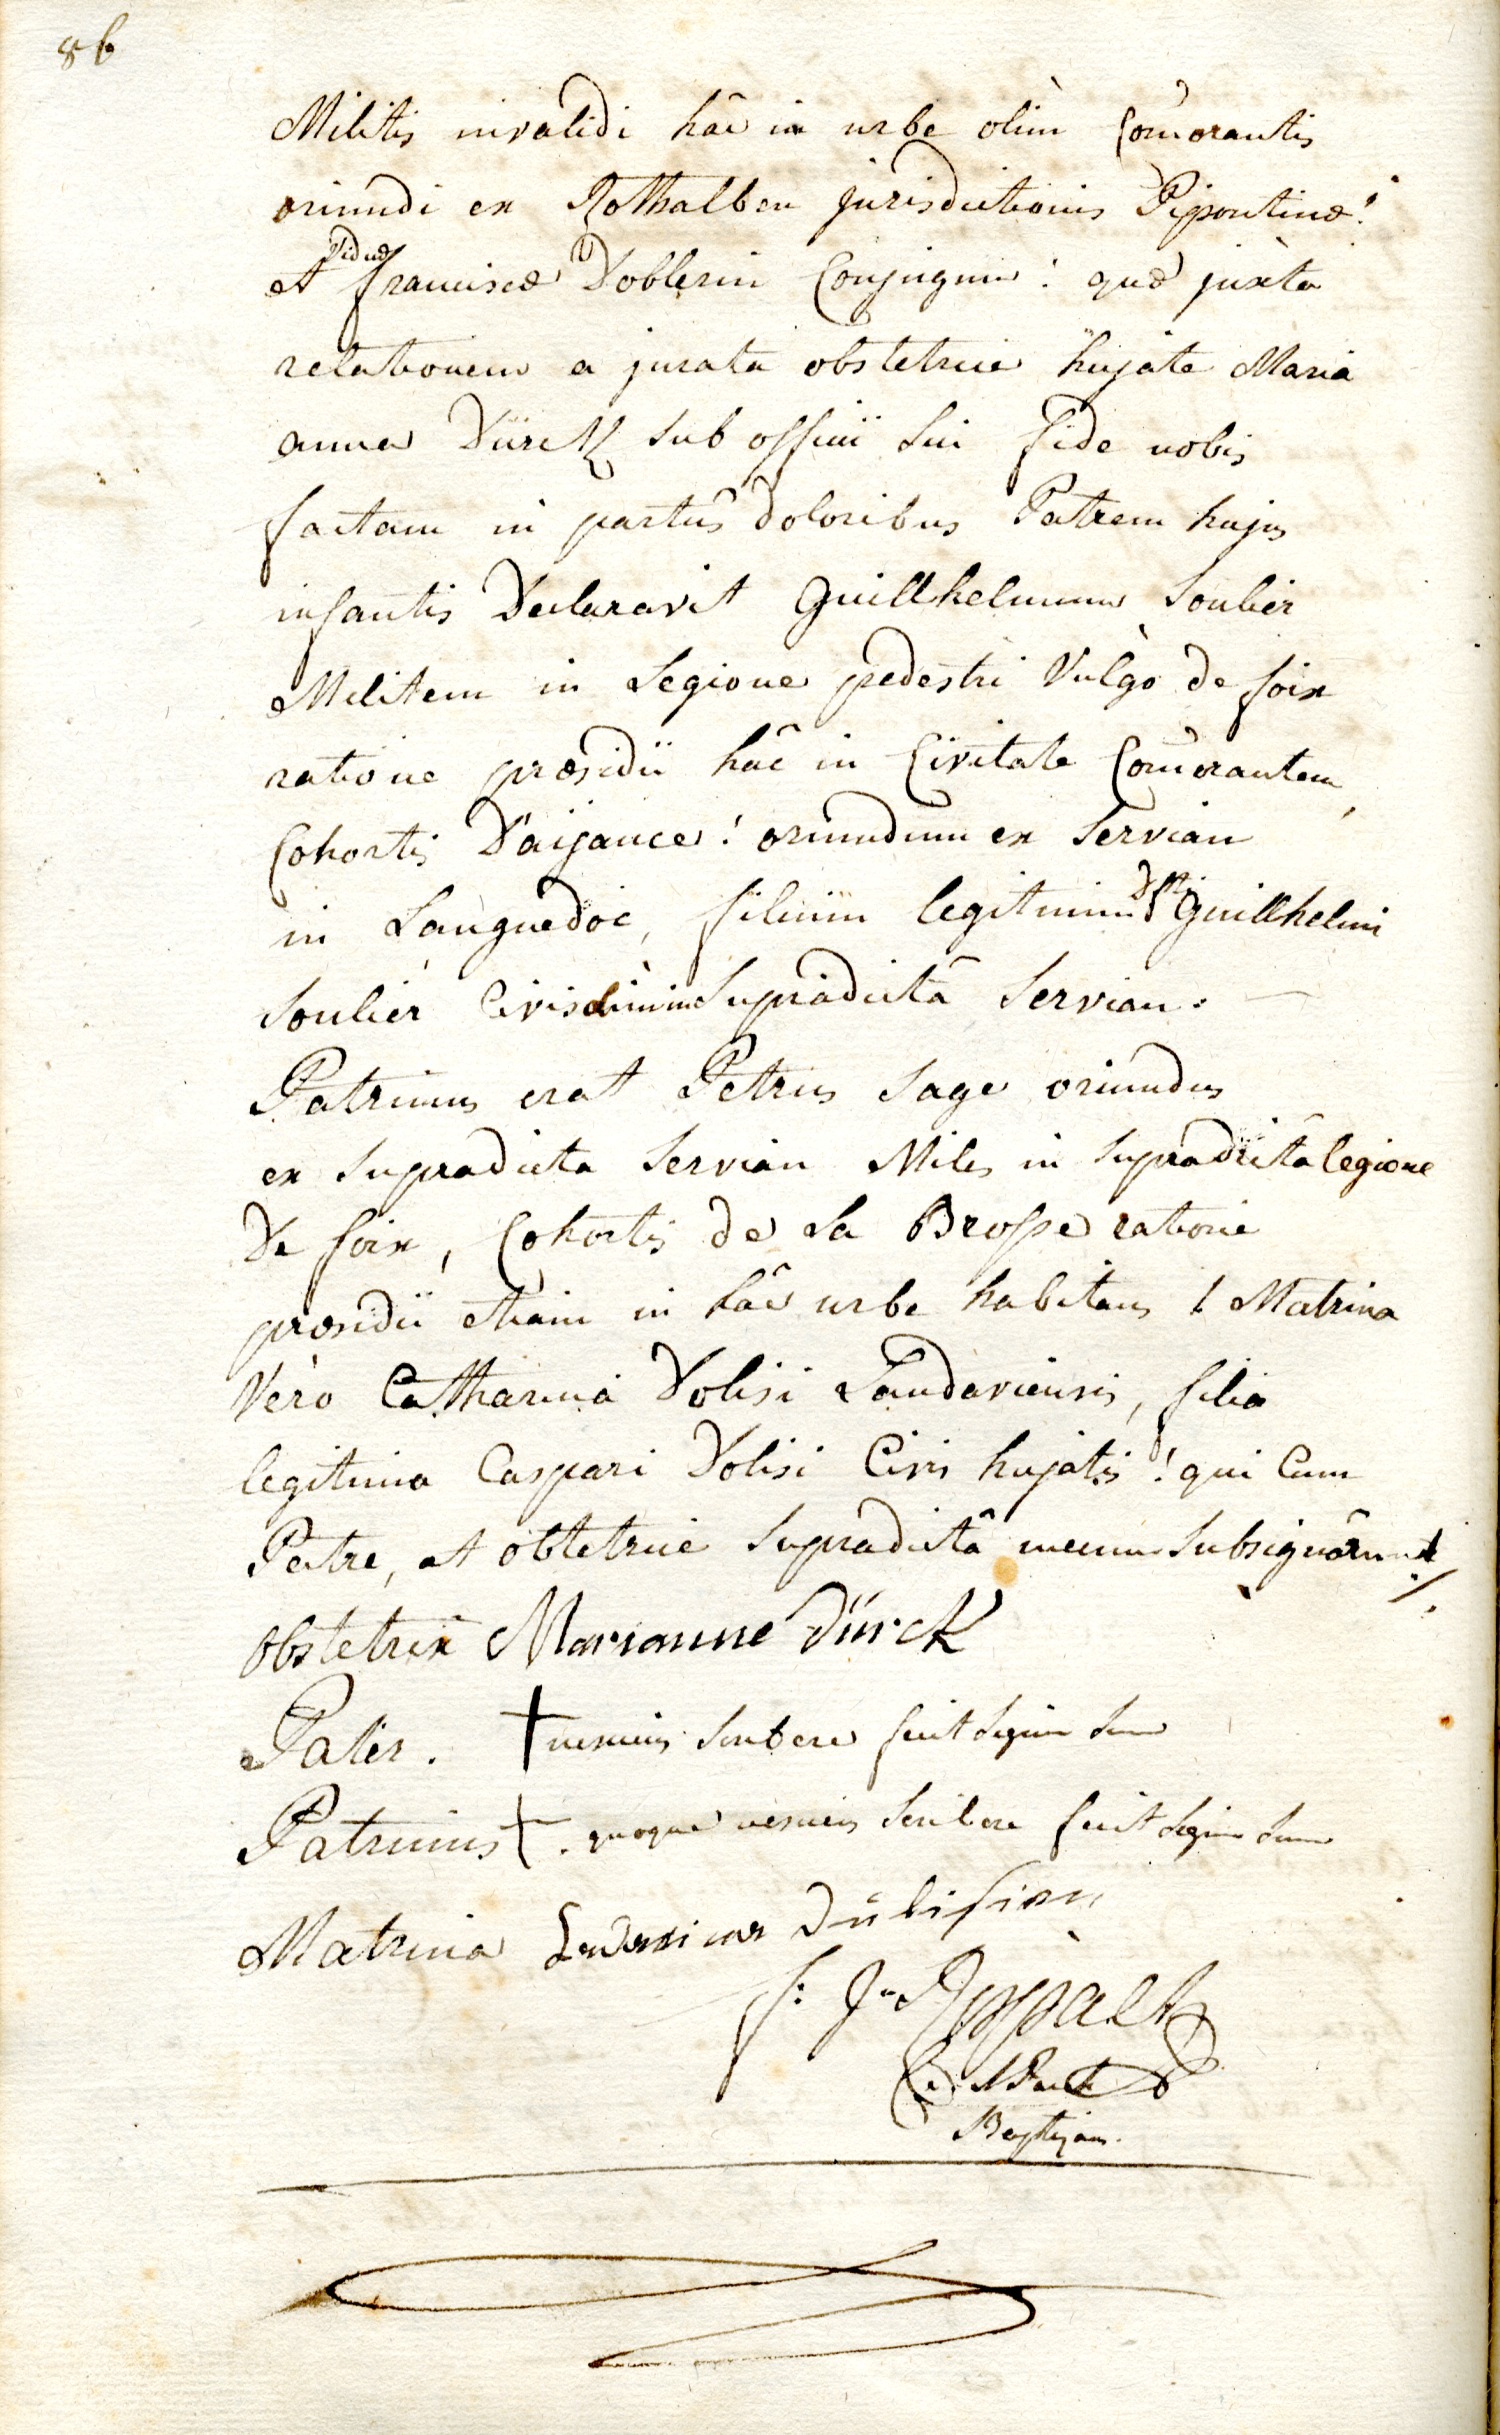 86
Militis invalidi hâc in urbe olim Com̃orantis
oriundi ex Rothalben jurisdictionis Bipontinæ!
et viduæ franciscæ Doblerin Conjugum: quæ juxta
relationem a jurata obstetrice hujate Maria
anna Dürck sub officii sui fide nobis
factam in partûs doloribus Patrem hujus
infantis Declaravit Guillhelmum Soulier
Militem in Legione pedestri Vulgò de foix
ratione præsidii hâc in Civitate Com̃orantem,
Cohortis D'aijance! oriundum ex Servian
in Languedoc, filium legitimum Dfti Guillhelmi
Soulier Civis in supradictâ Servian. —
Patrinus erat Petrus Sage oriundus
ex supradicta Servian Miles in supradictâ legione
De foix, Cohortis de La Brosse ratione
præsidii etiam in hâc urbe habitans! Matrina
Verò Catharina Dolisi Landaviensis, filia
legitima Caspari Dolisi Civis hujatis! qui Cum
Patre, et obtetrice supradictâ mecum subsignârunt
obstetrix Marianne Dürck
Pater. + nescius scribere fecit signum suum
Patrinus +. quoque nescius scribere fecit signum suum
Matrina
Baptizans.